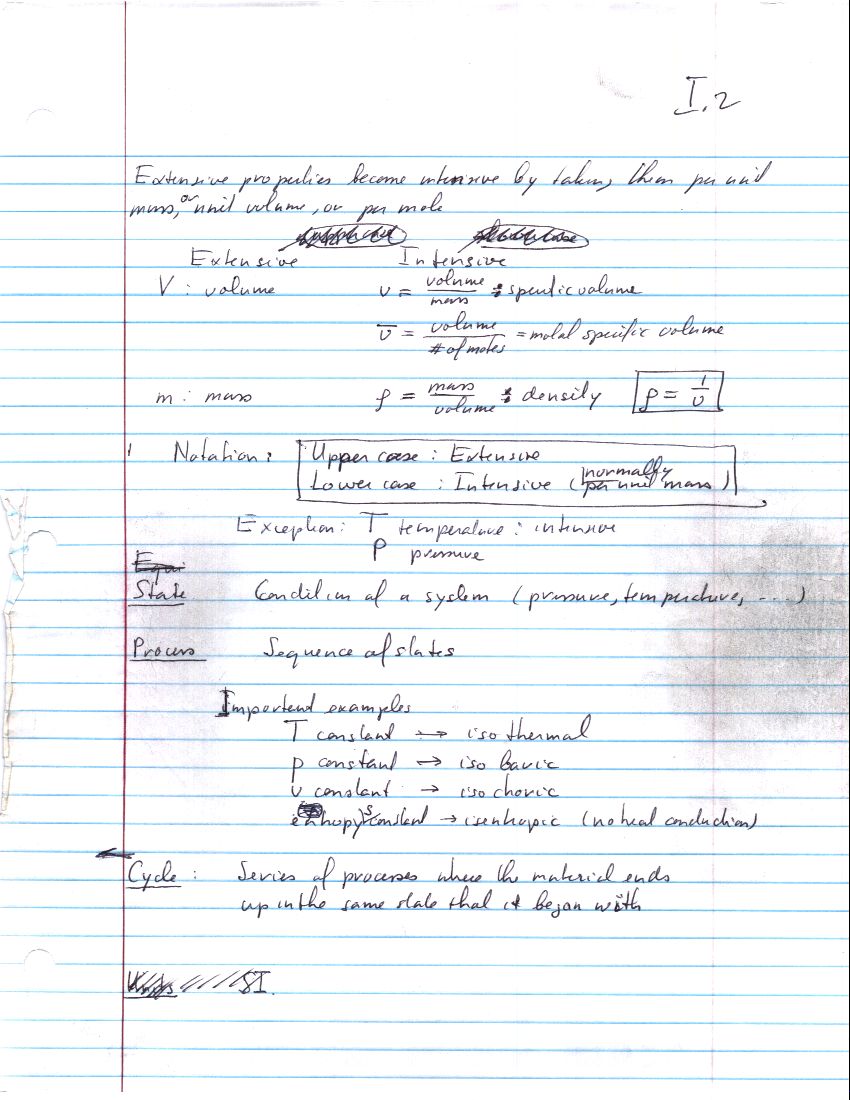 I.2
Extensive properties become intensive by taking them per unit
mass, or unit volume, or per mole
Extensive Intensive
V : volume v = volume/mass : specific volume
v̅ = volume/# of moles = molal specific volume
m : mass ρ = mass/volume : density ρ = 1/v
Notation: Upper case : Extensive
Lower case : Intensive (normally per unit mass)
Exception: T temperature : intensive
p pressure
Equi
State Condition of a system (pressure, temperature, ...)
Process Sequence of states
Importend examples
T constant → isothermal
p constant → isobaric
v constant → isochoric
entropy s constant → isentropic (no heat conduction)
Cycle : Series of processes where the material ends
up in the same state that it began with
SI